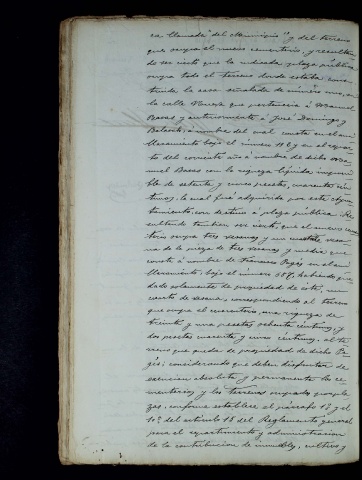 ca llamada "del Municipio" y del terreno
que ocupa el nuevo cementerio, y resultan
do ser cierto que la indicada plaza pública
ocupa todo el terreno donde estaba cons
truida la casa señalada de número uno, en
la calle Nueva que pertenecía á Manuel
Basas y anteriormente á José Domingo y
á nombre del cual consta en el ami
llaramiento bajo el número 186 y en el
to del corriente año á nombre de dicho Ma
nuel Basas con la riqueza líquida imponi
ble de setenta y cinco pesetas, cuarenta cén
timos, la cual fué adquirida por este Ayun
tamiento, con destino á plaza pública. Re
sultando tambien ser cierto, que el nuevo cemen
terio ocupa tres vesanas y un cuarto de vesa
na de la pieza de tres vesanas y media que
consta á nombre de Francisco Pagés en el ami
llaramiento, bajo el número 587, habiendo que
dado solamente de propiedad de éste, un
cuarto de vesana, correspondiendo al terreno
que ocupa el cementerio, una riqueza de
treinta y una pesetas ochenta céntimos, y
dos pesetas cuarenta y cinco céntimos, al ter
reno que queda de propiedad de dicho Pa
gés; considerando que deben disfrutar de
exencion absoluta y permanente los ce
menterios y los terrenos ocupados por pla
zas, conforme establece el párrafo 1º y el
10º del artículo 15 del Reglamento general
para el repartimiento y administracion
de la contribucion de inmuebles, cultivo y